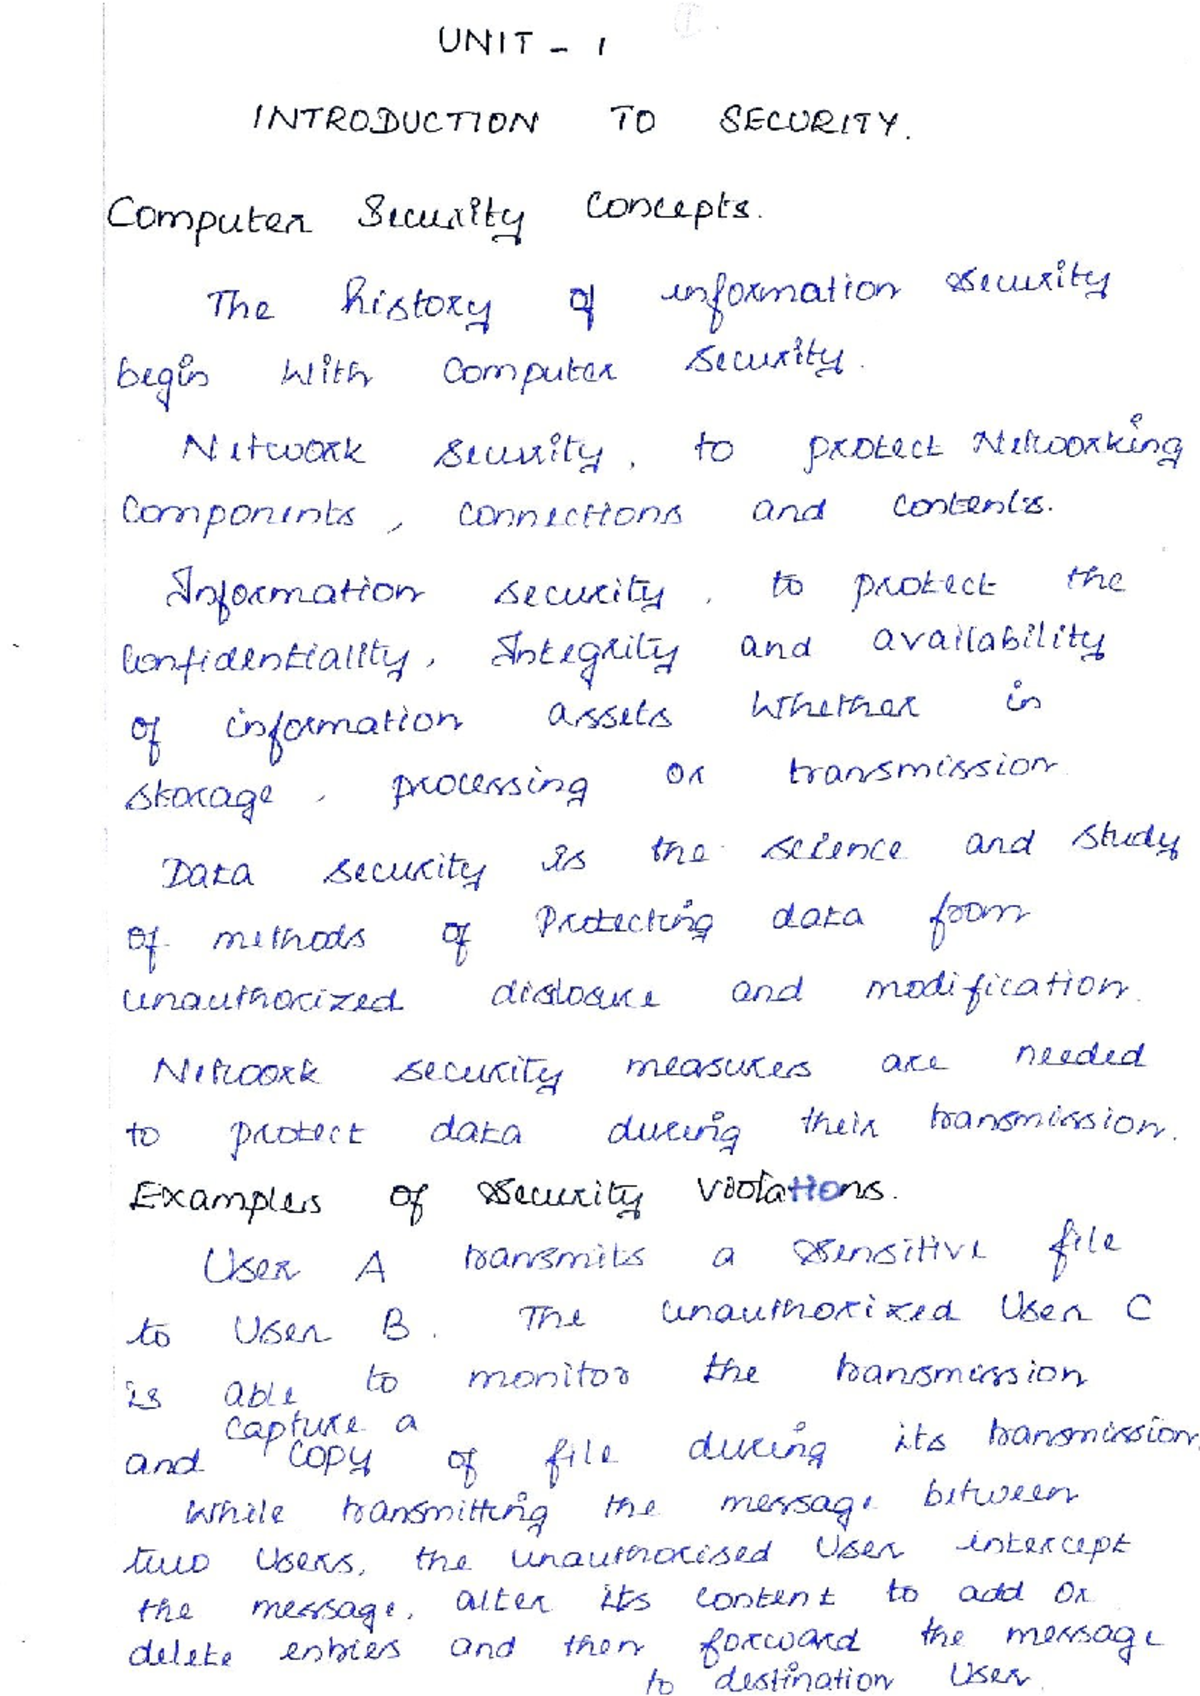 UNIT - 1
INTRODUCTION TO SECURITY.
Computer Security Concepts.
The history of information security
begin with computer security.
Network security, to protect Networking
components, connections and contents.
Information security, to protect the
confidentiality, Integrity and availability
of information assets whether in
storage, processing or transmission
Data security is the science and study
of methods of Protecting data from
unauthorized dislosure and modification.
Network security measures are needed
to protect data during their transmission.
Examples of Security violations.
User A transmits a sensitive file
to User B. The unauthorized User C
is able to monitor the transmission
capture a
and copy of file during its transmission.
While transmitting the message between
two users, the unauthorised User intercept
the message, alter its content to add or
delete entries and then forward the message
to destination User.